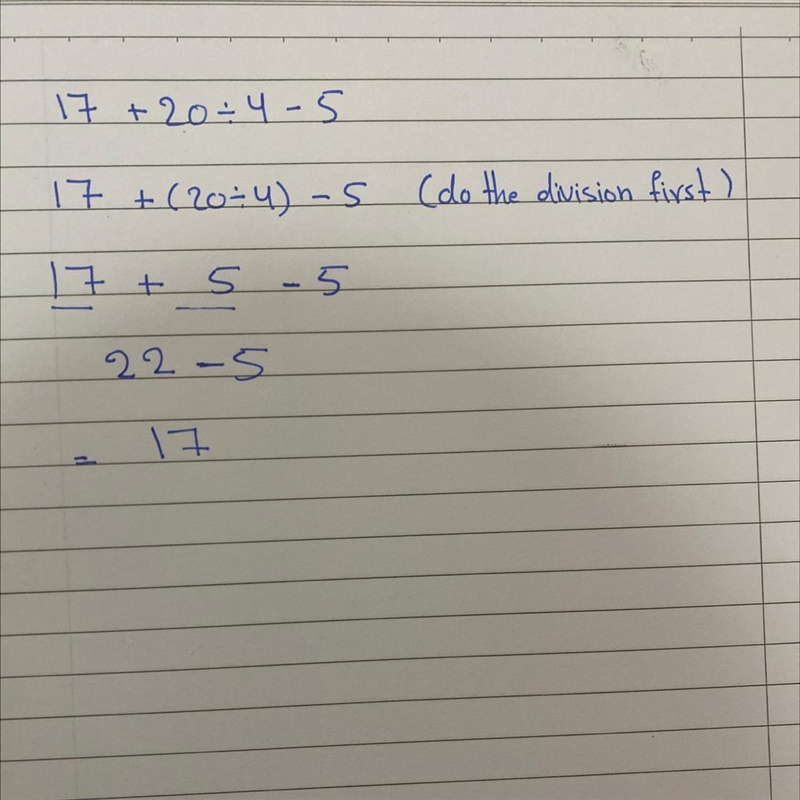 17 + 20 ÷ 4 - 5
17 + (20 ÷ 4) - 5 (do the division first)
17 + 5 - 5
22 - 5
= 17